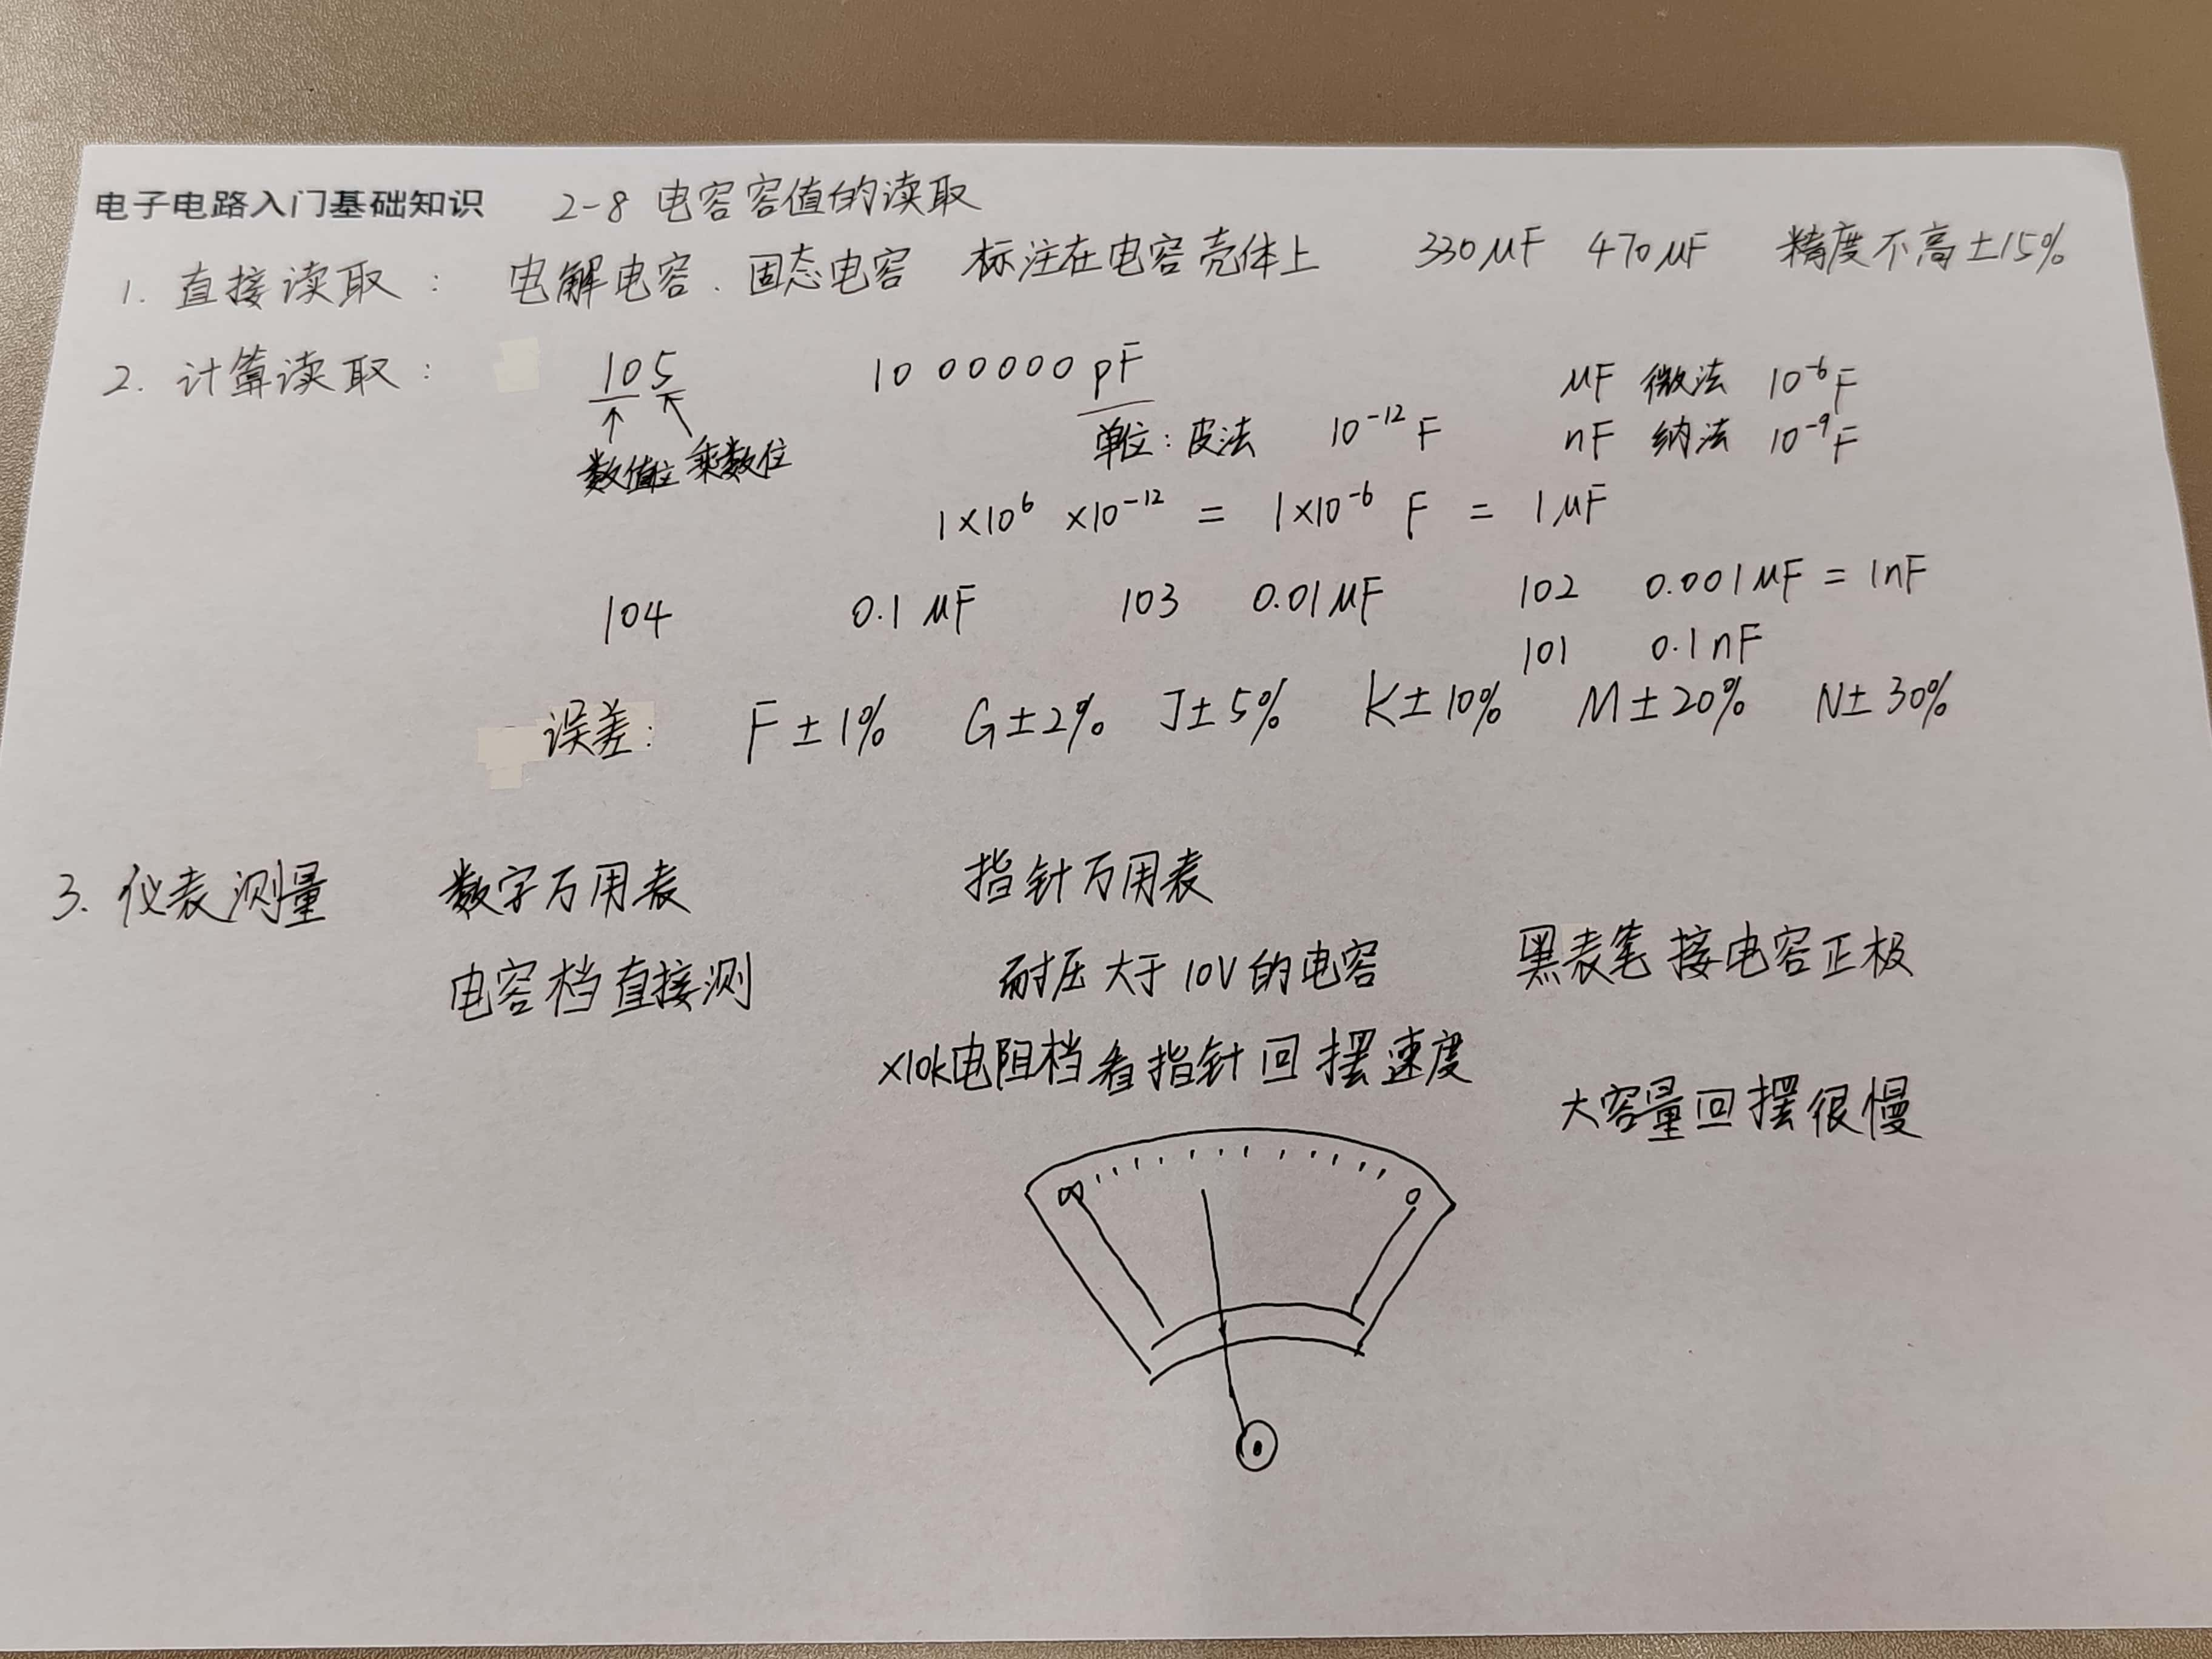 电子电路入门基础知识 2-8 电容容值的读取
1. 直接读取： 电解电容、固态电容 标注在电容壳体上 330μF 470μF 精度不高±15%
2. 计算读取： 105 1000000pF μF 微法 10⁻⁶F
数值位 乘数位 单位：皮法 10⁻¹²F nF 纳法 10⁻⁹F
1×10⁶ ×10⁻¹² = 1×10⁻⁶ F = 1μF
104 0.1μF 103 0.01μF 102 0.001μF = 1nF
101 0.1nF
误差： F±1% G±2% J±5% K±10% M±20% N±30%
3. 仪表测量 数字万用表 指针万用表
电容档直接测 耐压大于10V的电容 黑表笔接电容正极
×10k电阻档看指针回摆速度
大容量回摆很慢
∞ 0